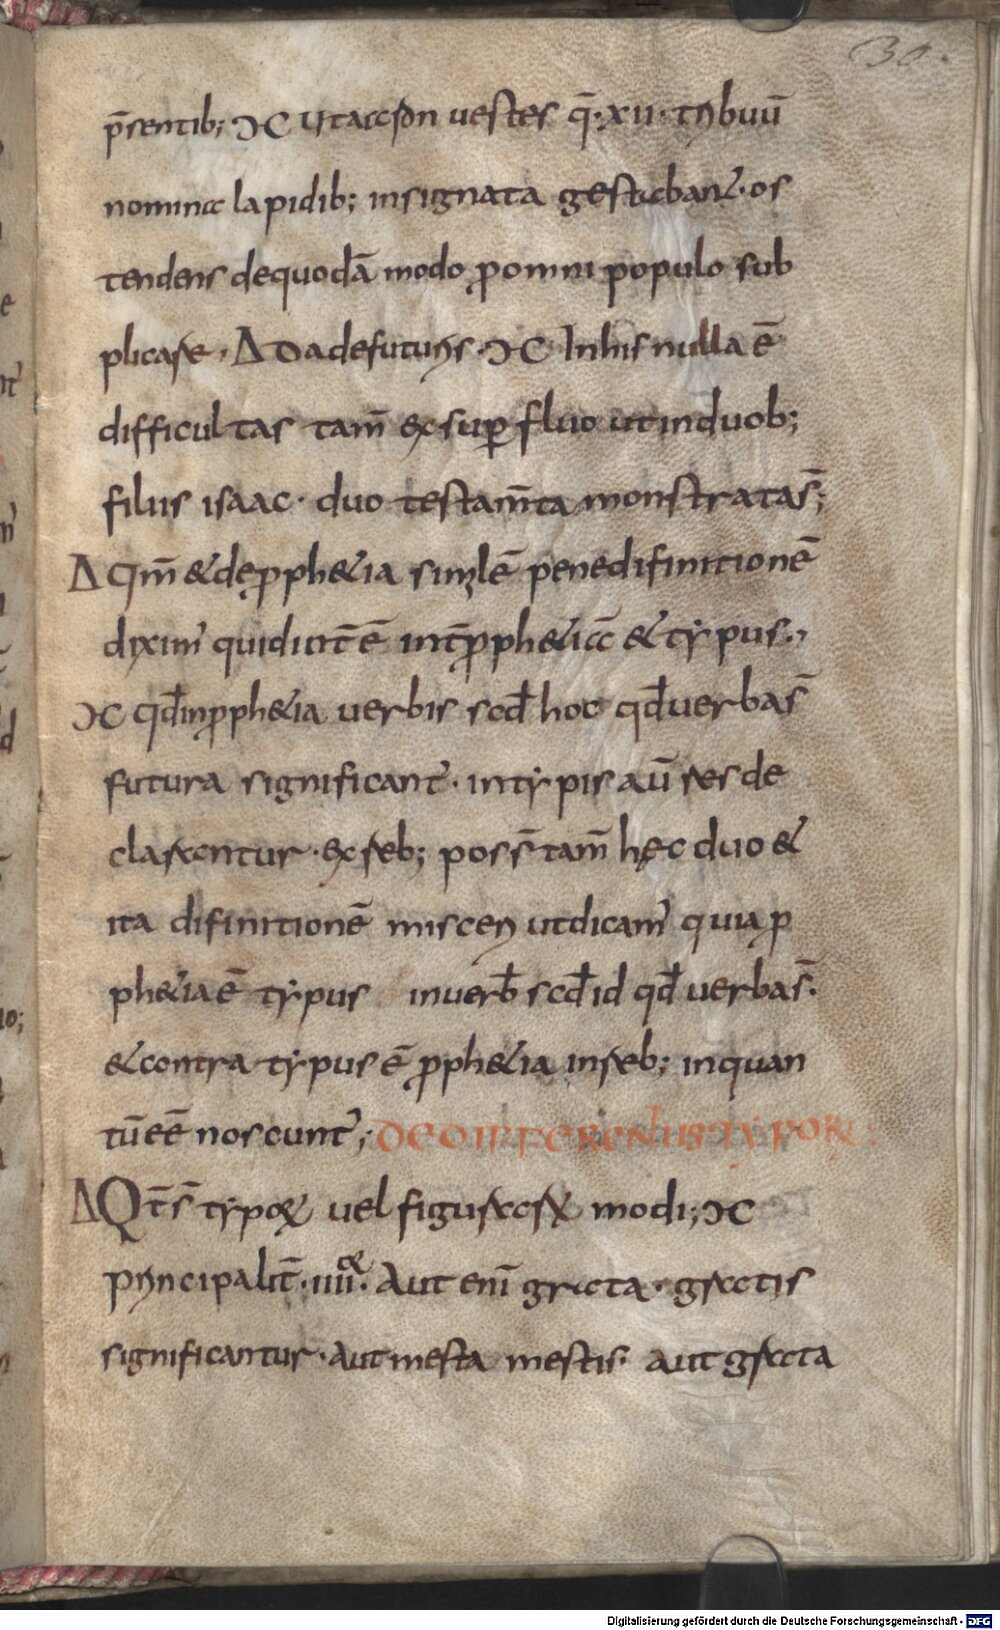 30.
p̄sentib; ϽC Ut aaron uestes q̄·xii· tribuū
nomina lapidib; insignata gestaban̄t·os
tendens dequodā modo ꝓomni populo sub
plicare, Δ Da defuturis·ϽC Inhis nulla ē
difficultas tam̄ exsuꝑfluo utinduob;
filiis isaac· duo testam̄ta monstratas̄;
Δ Qm̄ &deꝓph&ia similē penedifinitionē
diximꝰ quidint̄ē int̄ꝓph&iā & tẏpus.,
ϽC qd̄inꝓph&ia uerbis scd̄ hoc qd̄uerbas̄
futura significant̄· intẏpis aū res de
clarantur·exreb; poss̄ tam̄ hęc duo &
ita difinitionē misceri utdicamꝰ quia ꝓ
ph&ia ē tẏpus inuerb̄ scd̄ id qd̄ uerbas̄.
&contra tẏpus ē ꝓph&ia inreb; inquan
tū eē noscunt̄; DE DIFFERENTIIS TẎPOꝜ
Δ Qt̄s̄ tẏpoꝝ uel figuraꝝ modi; ϽC
principalit̄·iiii·Aut enī grata·gratis
significantur·Aut mesta mestis· aut grata
Digitalisierung gefördert durch die Deutsche Forschungsgemeinschaft - DFG